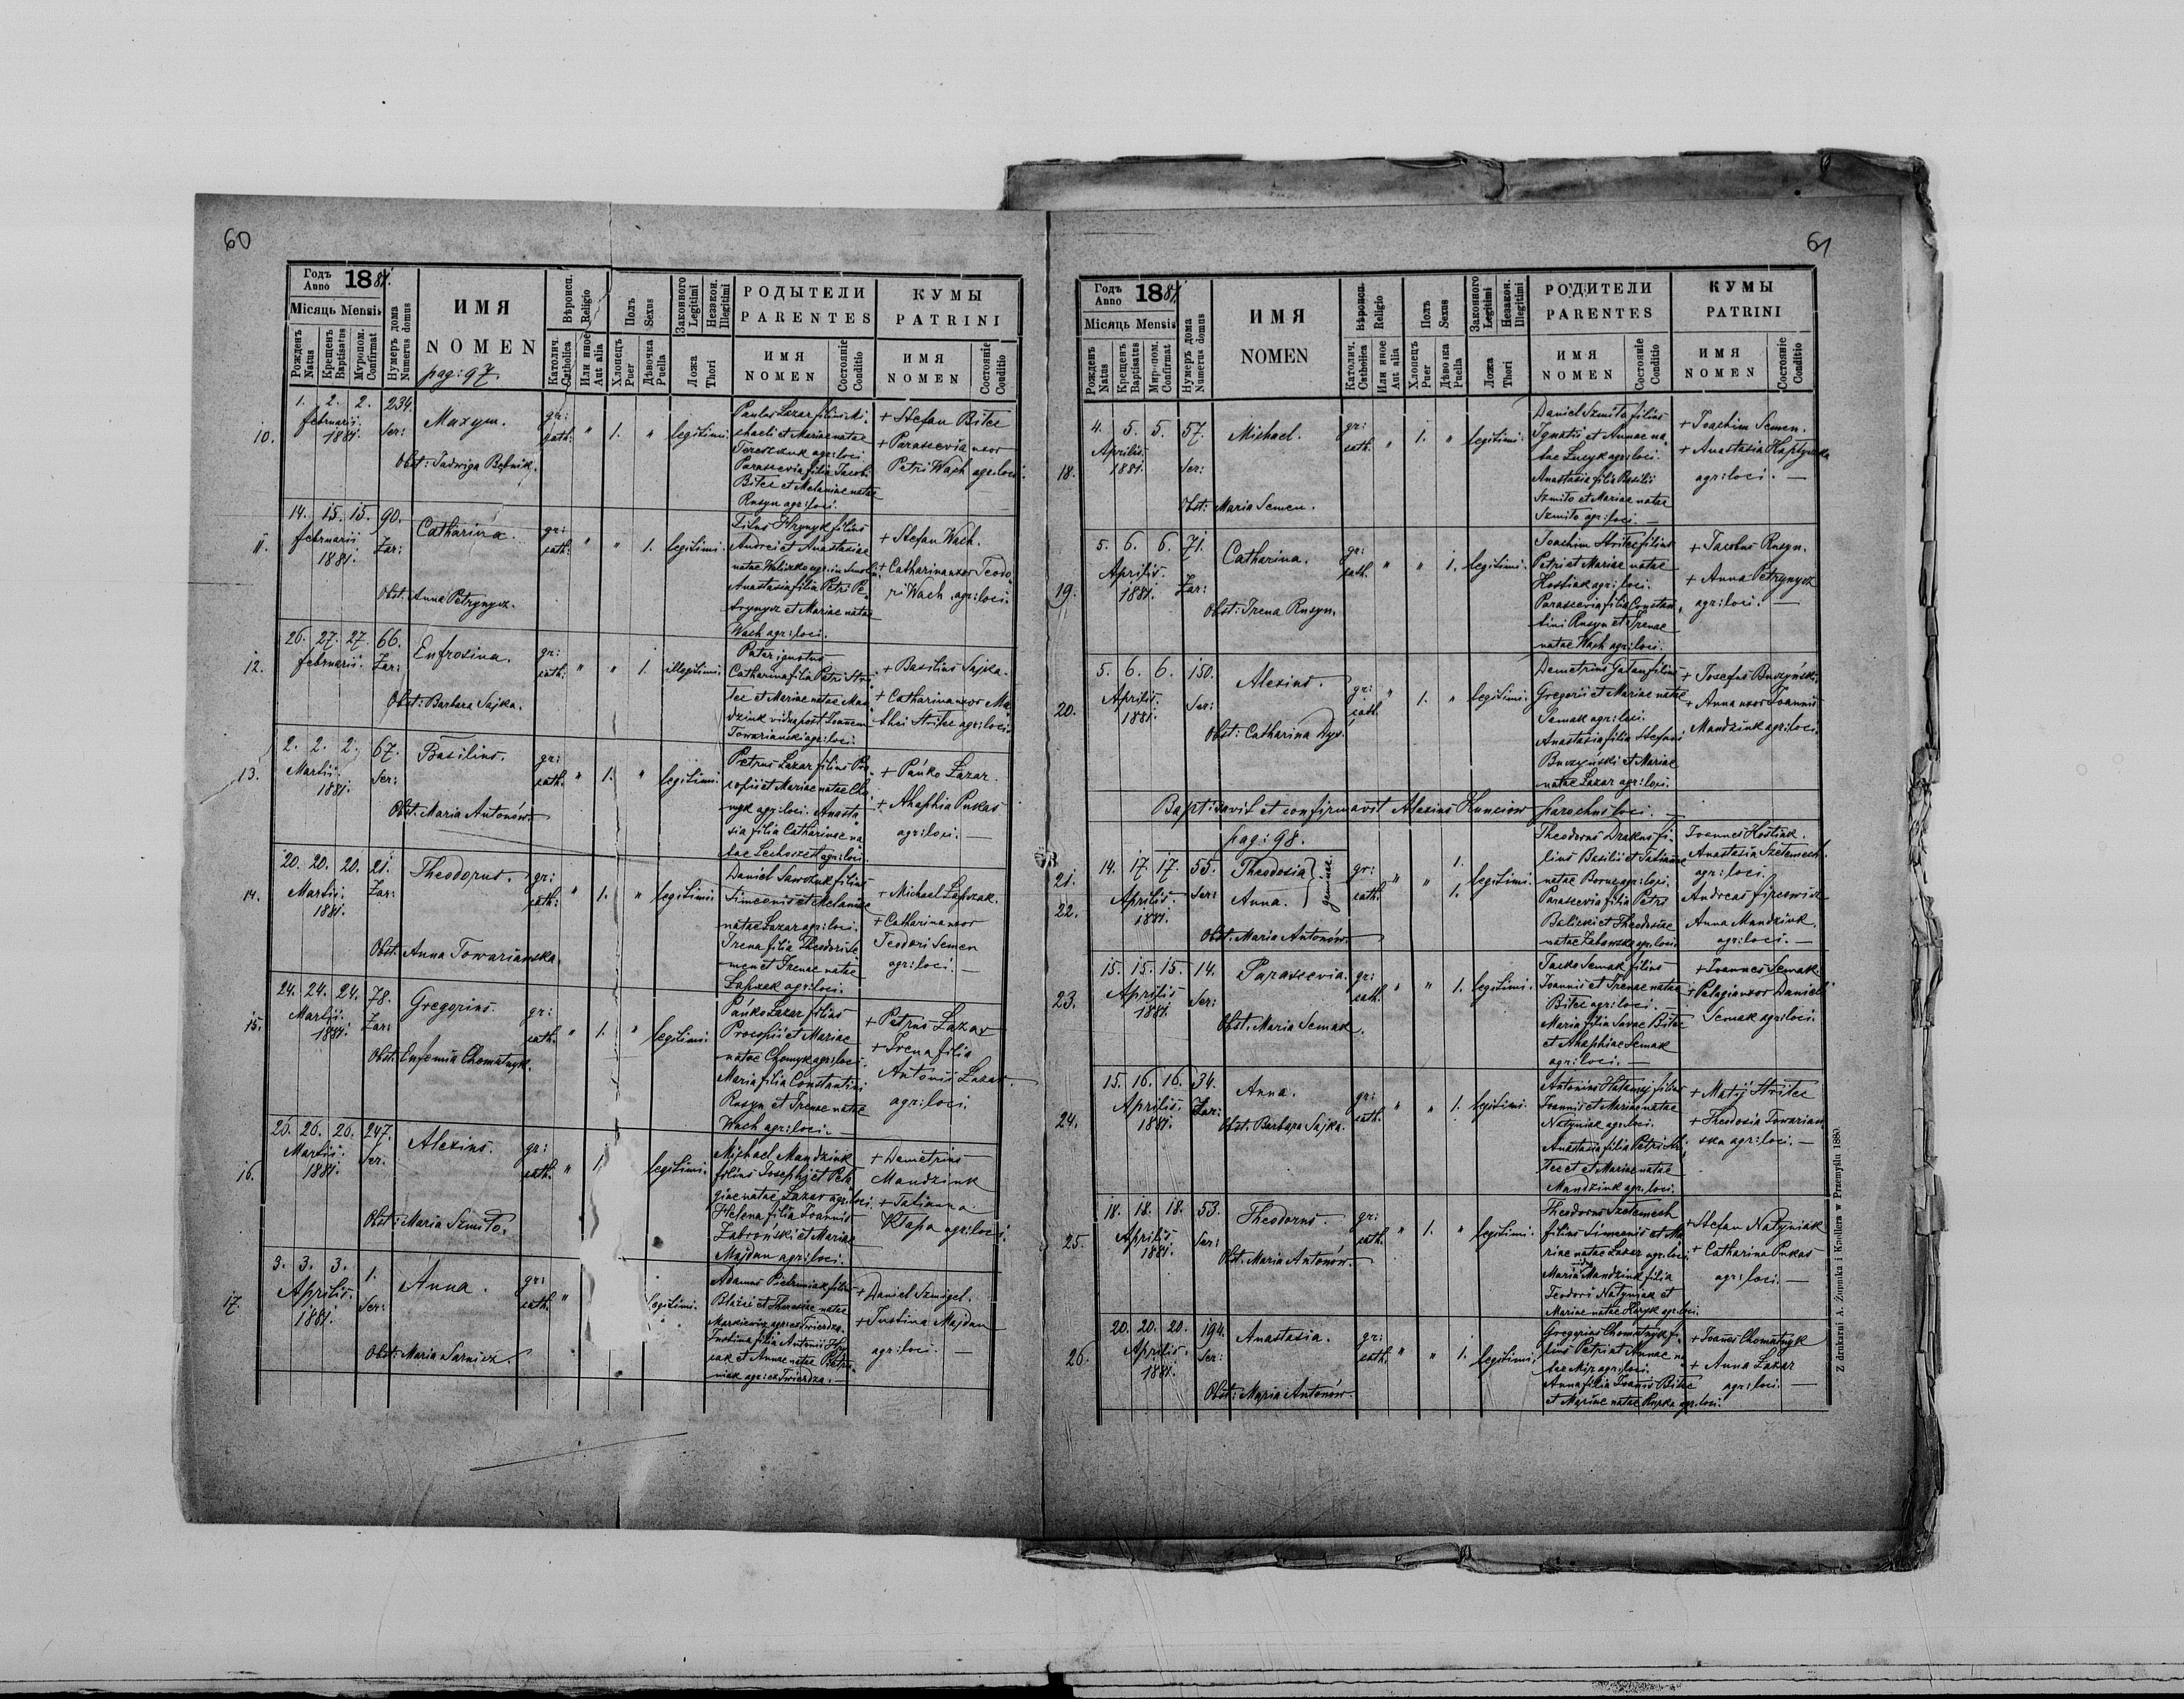 60
Годъ
Anno
1881.
Місяць Mensis
Рожденъ
Natus
Крещенъ
Baptisatus
Мѵропом.
Confirmat
Нумеръ дома
Numerus domus
ИМЯ
NOMEN
pag: 97.
Вѣроисп.
Religio
Католич.
Catholica
Или иное
Aut alia
Полъ
Sexus
Хлопецъ
Puer
Дѣвочка
Puella
Законного
Legitimi
Незакон.
Illegitimi
Ложа
Thori
РОДЫТЕЛИ
PARENTES
ИМЯ
NOMEN
Состояніе
Conditio
КУМЫ
PATRINI
ИМЯ
NOMEN
Состояніе
Conditio
10.
1. 2. 2. 234.
februarii
1881.
Ser:
Maxym.
gr:
cath:
" 1. " legitimi.
Obst: Jadwiga Bębnik.
Paulus Lazar filius Mi-
chaeli et Mariae natae
Tereszczuk agr: loci.
Parascevia filia Jacobi
Bitce et Melaniae natae
Rusyn agr: loci.
+ Stefan Bitce
+ Parascevia uxor
Petri Wach agr: loci.
11.
14. 15. 15. 90.
februarii
1881.
Zar:
Catharina.
gr:
cath:
" " 1. legitimi.
Obst. Anna Petrynycz.
Titus Hrynyk filius
Andrei et Anastasiae
Anastasia filia Petri Pe-
trynycz et Mariae natae
Wach agr: loci.
+ Stefan Wach.
+ Catharina uxor Teodo-
ri Wach agr: loci.
12.
26. 27. 27. 66.
februarii.
Zar:
Eufrosina.
gr:
cath:
" " 1. illegitimi.
Obst: Barbara Sajka.
Pater ignotus
Catharina filia Petri Stri-
tce et Mariae natae Man-
dziuk vidua post Joannem
Towarianski agr: loci.
+ Basilius Sajka.
+ Catharina uxor Ma-
thei Stritce agr: loci.
13.
2. 2. 2. 67.
Martii.
1881.
Ser:
Basilius.
gr:
cath.
" 1. " legitimi.
Obst. Maria Antonów.
Petrus Lazar filius Pro-
copii et Mariae natae Cho-
myk agr: loci. Anasta-
sia filia Catharinae na-
tae Lechoszet agr: loci.
+ Pańko Lazar.
+ Ahaphia Pukas
agr: loci. —
14.
20. 20. 20. 21.
Martii.
1881.
Zar:
Theodorus.
gr:
cath:
" 1. " legitimi
Obst: Anna Towarianska.
Daniel Sawczuk filius
Simeonis et Melaniae
natae Lazar agr: loci.
Irena filia Theodori Se-
men et Irenae natae
Łapczak agr: loci.
+ Michael Łapczak.
+ Catharina uxor
Teodori Semen
agr: loci. —
15.
24. 24. 24. 78.
Martii.
1881.
Zar:
Gregorius.
gr:
cath.
" 1. " legitimi.
Obst: Eufemia Chomatnyk.
Pańko Lazar filius
Procopii et Mariae
natae Chomyk agr: loci.
Maria filia Constantini
Rusyn et Irenae natae
Wach agr: loci. —
+ Petrus Lazar
+ Irena filia
Antonii Lazar.
agr: loci.
16.
25. 26. 26. 247.
Martii.
1881.
Ser.
Alexius.
gr:
cath.
" 1. legitimi.
Obst: Maria Szmito.
Michael Mandziuk
filius Josephi et Pela-
giae natae Lazar agr: loci.
Helena filia Joannis
Zabroński et Mariae
Majdan agr: loci.
+ Demetrius
Mandziuk
+ Tatianna
Kłapa agr: loci.
17.
3. 3. 3. 1.
Aprilis.
1881.
Ser:
Anna.
gr:
cath.
" legitimi.
Obst. Maria Sarnicz.
Adamus Pietruniak filius
Blasii et Theresiae natae
Markiewicz agr: ex Twierdza.
Justina filia Antonii
et Annae natae
agr: ex Twierdza. —
+ Daniel Szmigel.
+ Justina Majdan
agr: loci. —
61
Годъ
Anno
1881.
Місяць Mensis
Рожденъ
Natus
Крещенъ
Baptisatus
Миропом.
Confirmat
Нумеръ дома
Numerus domus
ИМЯ
NOMEN
Вѣроисп.
Religio
Католич.
Catholica
Или иное
Aut alia
Полъ
Sexus
Хлопецъ
Puer
Дѣвочка
Puella
Законного
Legitimi
Незакон.
Illegitimi
Ложа
Thori
РОДИТЕЛИ
PARENTES
ИМЯ
NOMEN
Состояніе
Conditio
КУМЫ
PATRINI
ИМЯ
NOMEN
Состояніе
Conditio
18.
4. 5. 5. 57.
Aprilis
1881.
Ser:
Michael.
gr:
cath.
" 1. " legitimi.
Obst: Maria Semen.
Daniel Szmito filius
Ignatii et Annae na-
tae Lucyk agr: loci.
Anastasia filia Basilii
Szmito et Mariae natae
Szmito agr: loci. —
+ Joachim Semen.
+ Anastasia
agr: loci. —
19.
5. 6. 6. 71.
Aprilis.
1881.
Zar:
Catharina.
gr:
cath.
" " 1. legitimi.
Obst: Irena Rusyn.
Joachim Stritce filius
Petri et Mariae natae
Kostiak agr: loci.
Parascevia filia Constan-
tini Rusyn et Irenae
natae Wach agr: loci.
+ Jacobus Rusyn.
+ Anna Petrynycz
agr: loci. —
20.
5. 6. 6. 150.
Aprilis.
1881.
Ser:
Alexius.
gr:
cath.
" 1. " legitimi.
Obst: Catharina Dyr.
Demetrius Gatan filius
Gregorii et Mariae natae
Semak agr: loci.
Anastasia filia Stefani
Buczyński et Mariae
natae Lazar agr: loci.
+ Josefus Buczyński.
+ Anna uxor Joannis
Mandziuk agr: loci.
Baptisavit et confirmavit Alexius Kunciow parochus loci. —
pag: 98.
21.
22.
14. 17. 17. 55.
Aprilis.
1881.
Ser:
Theodosia
Anna.
gemini.
gr:
cath.
" " 1. legitimi.
1.
Obst. Maria Antonów.
Theodorus Drakus fi-
lius Basilii et Tatianae
natae Bornc agr: loci.
Parascevia filia Petri
Belicki et Theodosiae
natae Zabawska agr: loci.
Joannes Kostiak.
Anastasia Szetemech.
agr: loci.
Andreas
Anna Mandziuk.
agr: loci. —
23.
15. 15. 15. 14.
Aprilis
1881.
Ser:
Parascevia.
gr:
cath.
" " 1. legitimi.
Obst. Maria Semak.
Jacko Semak filius
Joannis et Irenae natae
Bitce agr: loci.
Maria filia Savae Bitce
et Ahaphiae Semak
agr: loci. —
+ Joannes Semak.
+ Pelagia uxor Danieli
Semak agr: loci.
24.
15. 16. 16. 34.
Aprilis.
1881.
Zar:
Anna.
gr:
cath.
" " 1. legitimi.
Obst. Barbara Sajka.
Antonius Hatamij filius
Joannis et Mariae natae
Natyniak agr: loci.
Anastasia filia Petri Stri-
tce et Mariae natae
Mandziuk agr: loci.
+ Matij Stritce
+ Theodosia Towarian-
ska agr: loci. —
25.
18. 18. 18. 53.
Aprilis
1881.
Ser:
Theodorus.
gr:
cath.
" 1. " legitimi.
Obst. Maria Antonów.
Theodorus Szetemech
filius Simeonis et Ma-
riae natae Lazar agr: loci.
vidua
Maria Mandziuk filia
Teodori Natyniak et
Mariae natae Hryk agr: loci.
+ Stefan Natyniak
+ Catharina Pukas
agr: loci. —
26.
20. 20. 20. 194.
Aprilis.
1881.
Ser:
Anastasia.
gr:
cath.
" " 1. legitimi.
Obst: Maria Antonów.
Gregorius Chomatnyk fi-
lius Petri et Annae na-
tae Mir agr: loci.
Anna filia Joannis Bitce
et Mariae natae agr: loci.
+ Joannes Chomatnyk
+ Anna Lazar
agr: loci. —
Z drukarni A. Żupnika i Knollera w Przemyślu 1880.